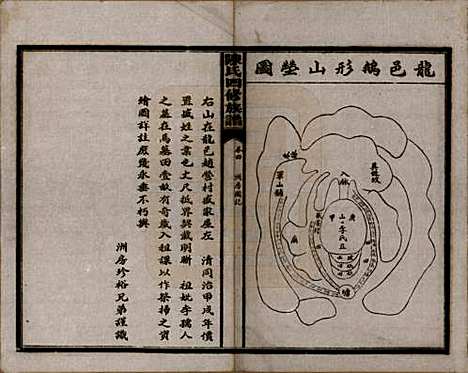 龍邑鵝形山塋圖
入脉
庚山
甲
李氏丘
塘
陳氏四修族譜
卷四
洲房圖記
右山在龍邑趙營村戚家屋左 清同治甲戌年價
置戚姓之業也丈尺抵界契載明晰 祖妣李孺人
之墓在焉墓田壹畝有奇歲入租課以作祭掃之資
繪圖詳註庶幾永垂不朽與
洲房珍裕兄弟謹識